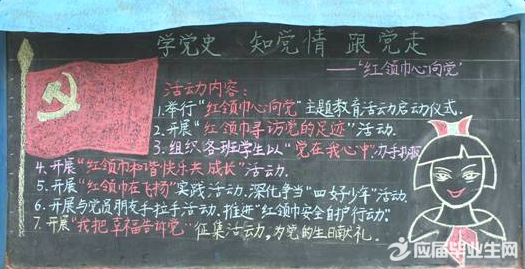 学党史 知党情 跟党走
——‘红领巾心向党’
活动内容：
1.举行“红领巾心向党”主题教育活动启动仪式.
2.开展“红领巾寻访党的足迹”活动.
3.组织各班学生以“党在我心中”办手抄报
4.开展“红领巾和谐快乐共成长”活动.
5.开展“红领巾在飞扬”实践活动.深化争当“四好少年”活动.
6.开展与党员朋友手拉手活动.推进“红领巾安全自护行动”.
7.开展“我把幸福告诉党”征集活动,为党的生日献礼.
应届毕业生网